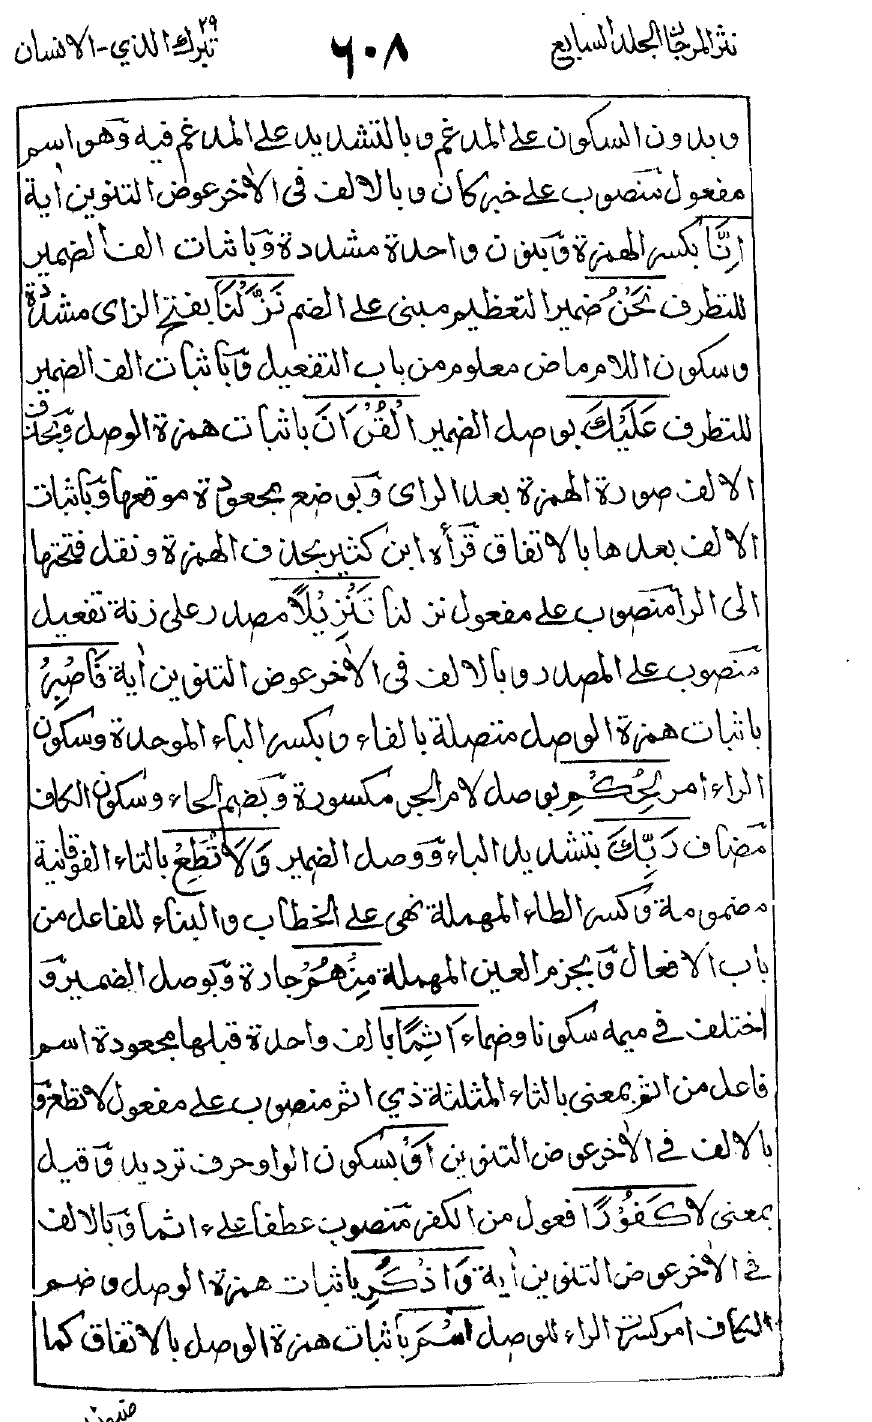 نثر المرجان الجلد السابع
٦٠٨
تبرك الذي ٢٩ - الانسان
وبدون السكون على المدغم وبالتشديد على المدغم فيه وهو اسم
مفعول منصوب على خبر كان وبالالف فى الاخر عوض التنوين اية
اِنَّا بكسر الهمزة وبنون واحدة مشددة وباثبات الف الضمير
للتطرف نَحْنُ ضمير التعظيم مبنى على الضم نَزَّلْنَا بفتح الزاى مشددة
وسكون اللام ماض معلوم من باب التفعيل وباثبات الف الضمير
للتطرف عَلَيْكَ بوصل الضمير الْقُرْاٰنَ باثبات همزة الوصل وبحذف
الالف صورة الهمزة بعد الراى وبوضع مجعودة موقعها وباثبات
الالف بعدها بالاتفاق قرأه ابن كثير بحذف الهمزة ونقل فتحتها
الى الرا منصوب على مفعول نزلنا تَنْزِيْلًا مصدر على زنة تفعيل
منصوب على المصدر وبالالف فى الاخر عوض التنوين اية فَاصْبِرْ
باثبات همزة الوصل متصلة بالفاء وبكسر الباء الموحدة وسكون
الراء امر لِحُكْمِ بوصل لام الجر مكسورة وبضم الحاء وسكون الكاف
مضاف رَبِّكَ بتشديد الباء ووصل الضمير وَلَا تُطِعْ بالتاء الفوقانية
مضمومة وكسر الطاء المهملة نهى على الخطاب والبناء للفاعل من
باب الافعال وبجزم العين المهملة مِنْهُمْ جارة وبوصل الضمير و
اختلف فى ميمه سكونا وضما اٰثِمًا بالف واحدة قبلها مجعودة اسم
فاعل من اثم بمعنى بالثاء المثلثة ذي اثم منصوب على مفعول لا تطع و
بالالف فى الاخر عوض التنوين اَوْ بسكون الواو حرف ترديد وقيل
بمعنى لا كَفُوْرًا فعول من الكفر منصوب عطفا على اثما وبالالف
فى الاخر عوض التنوين اية وَاذْكُرِ باثبات همزة الوصل وضم
الكاف امر كسرت الراء للوصل اسْمَ باثبات همزة الوصل بالاتفاق كما